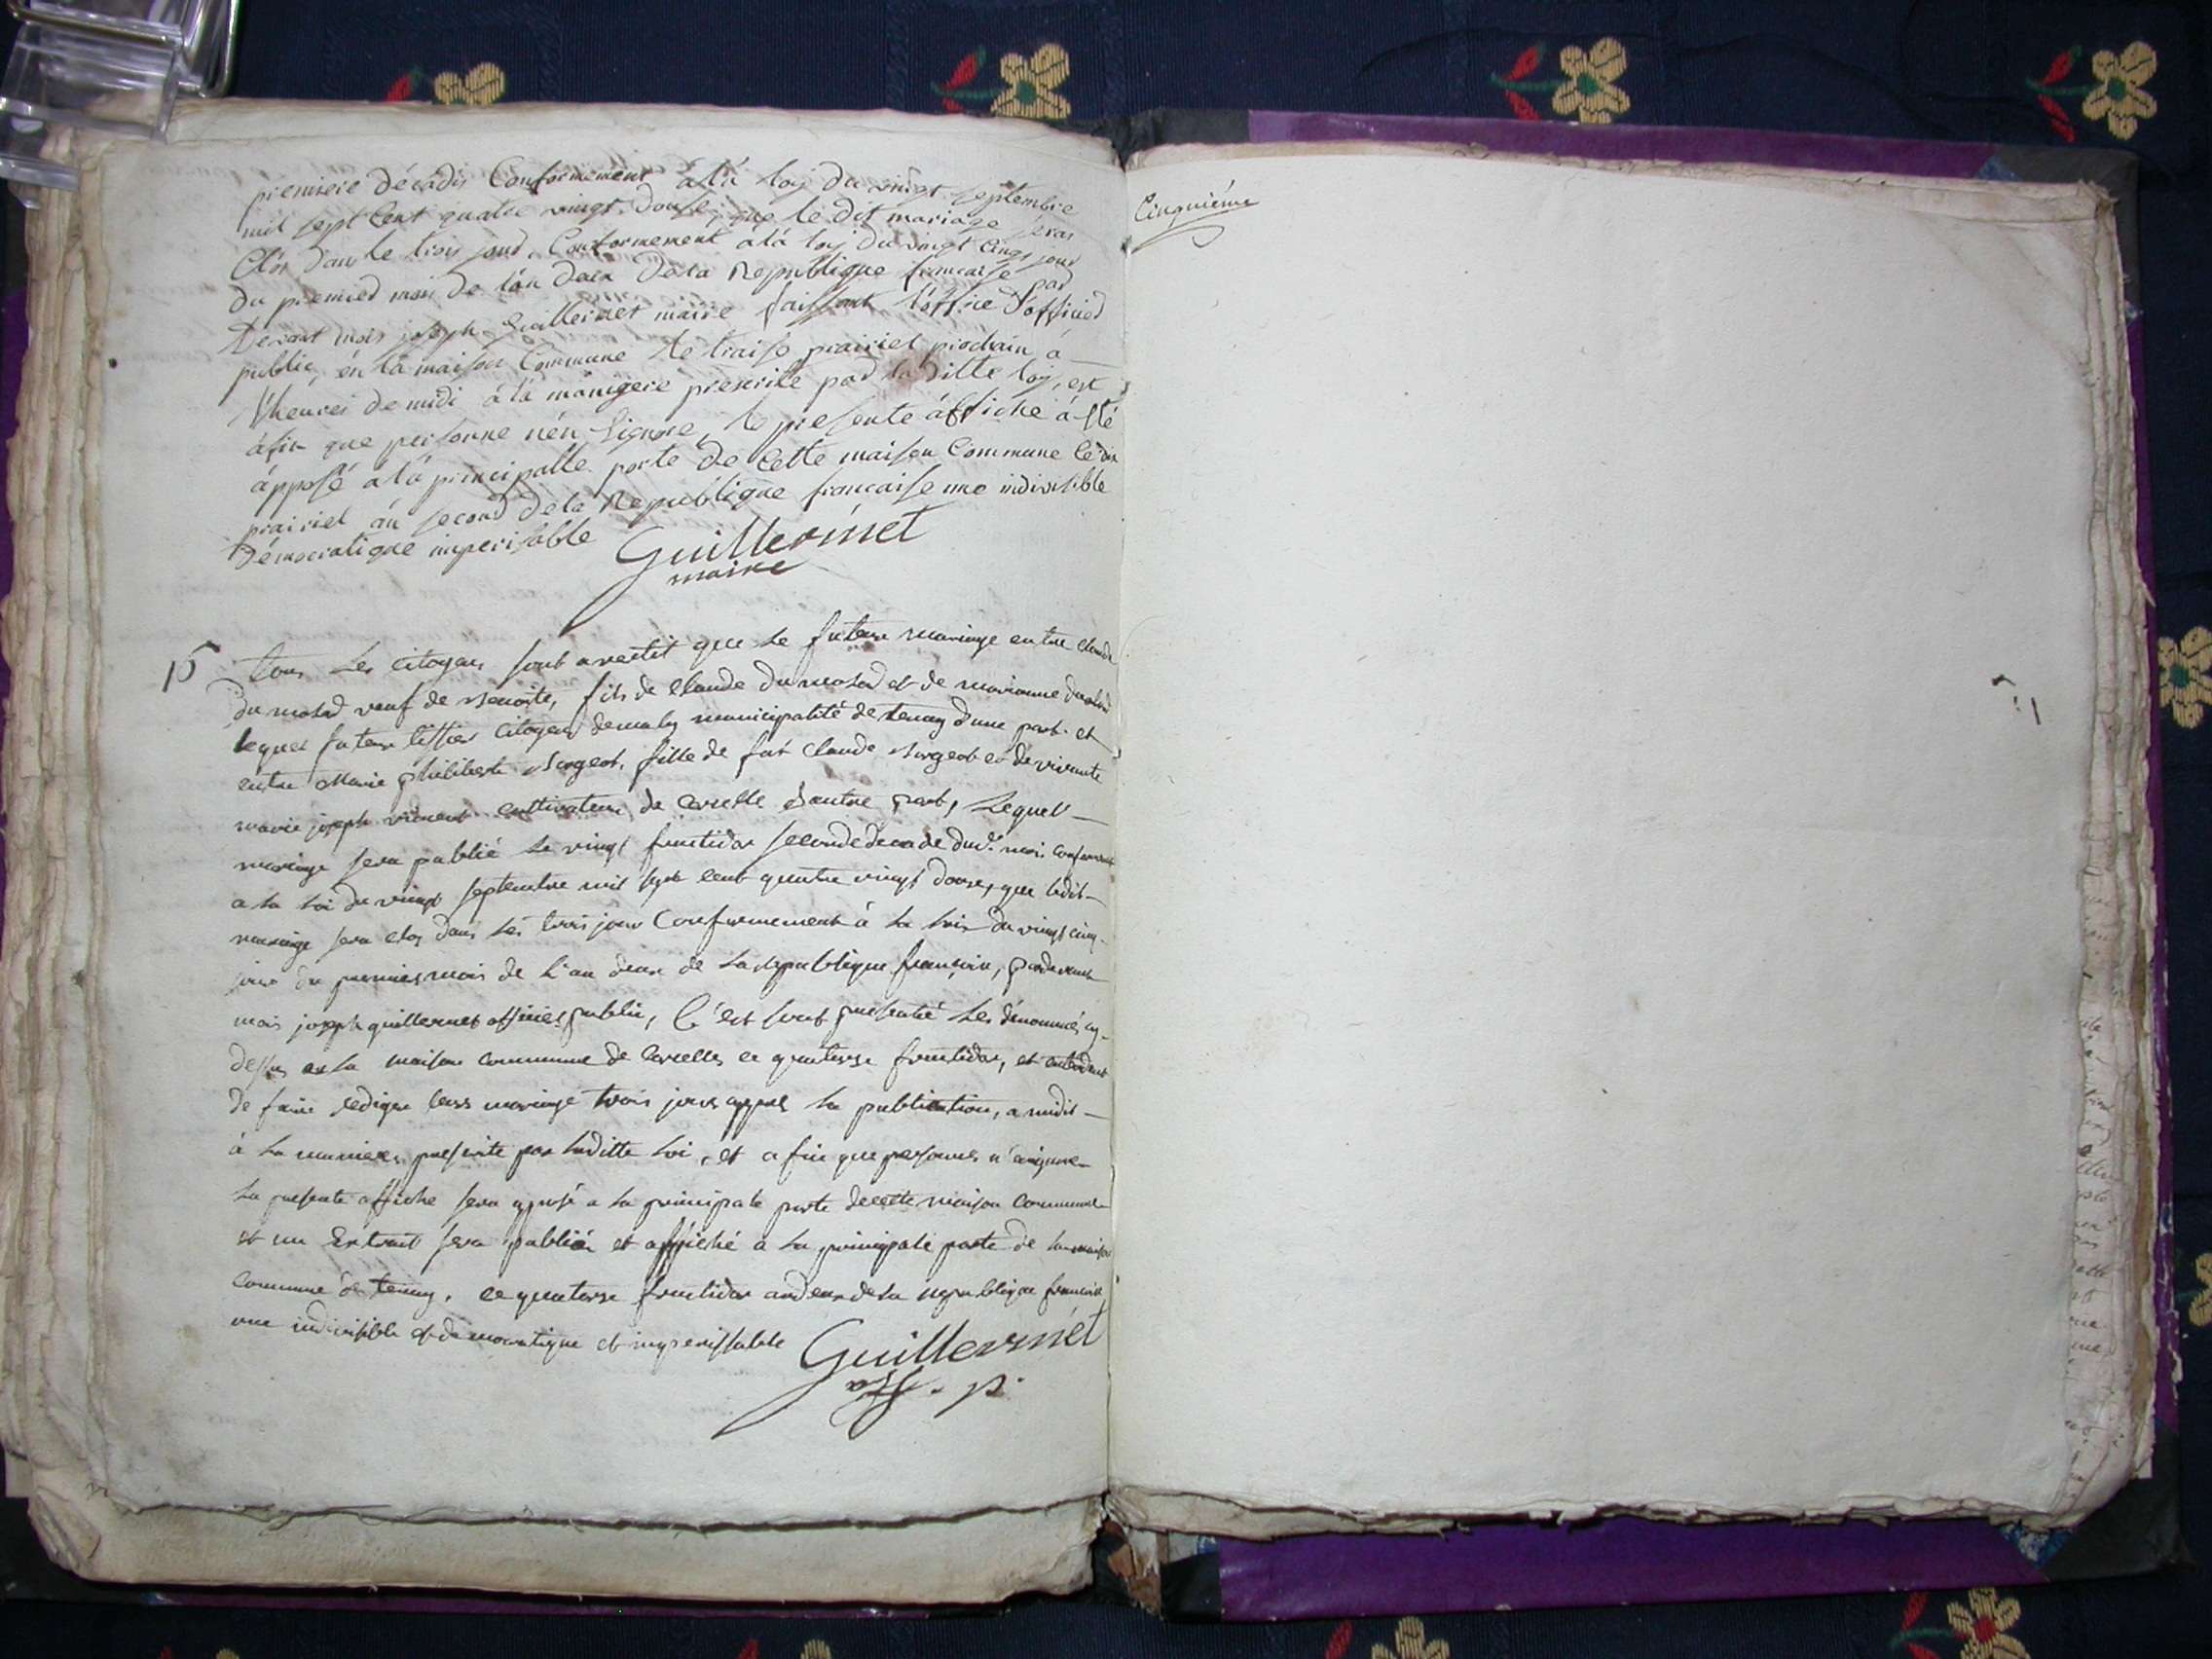 premiere décadis Conformement à la loy du vingt septembre
mil sept Cent quatre vingt douse, que le dit mariage seras
Clos dans le trois jour, Conformement à la loy du vingt cinq jour
du premied mois de l'an deux de la Republique française par
devant mois joseph Guillermet maire faissant l'office d'officied
public, én la maison Commune le traise prairiel prochain à
l'heures de midi à la maniyere prescrite pad la ditte loy, est
afin que personne n'én Lignore, le presente áffiche à èté
ápposé à la principalle porte de Cette maison Commune Ce dix
prairiel an second de la Republique française une indivisible
démocratique imperisable Guillermet
maire
15 tous les citoyens sont avertit que le future mariage entre Claude
dumolard veuf de Benoite, fils de Claude dumolard et de marianne
lequel future tissier citoyen municipalité de tenay d'une part et
entre Marie philiberte fille de fut Claude et de vivante
marie joseph cultivateur, de d'autre part, Lequel
mariage sera publié le vingt fructidor seconde decade dud. mois conformement
a la loi du vingt septembre mil sept cent quatre vingt douse, que ledit
mariage sera clos dans les trois jour Conformement à la lois du vingt cinq
jour du premier mois de l'an deux de la republique française, pardevant
mois joseph guillermet officier public, Ce est sont presenté les dénommés cy
dessus en la maison commune de ce quatorse fructidor, et
de faire rediger leurs mariage trois jours appres la publication, a midit
à la maniere prescrite par laditte loi, et afin que personnes n'en ignore
La presente affiche sera apposé a la principale porte de cette maison commune
et un Extrait sera publiéé et affiché a la principale porte de la maison
commune de tenay, ce quatorse fructidor an deux de la republique française
une indivisible et démocratique et imperissable Guillermet
off. p.
Cinquiéme